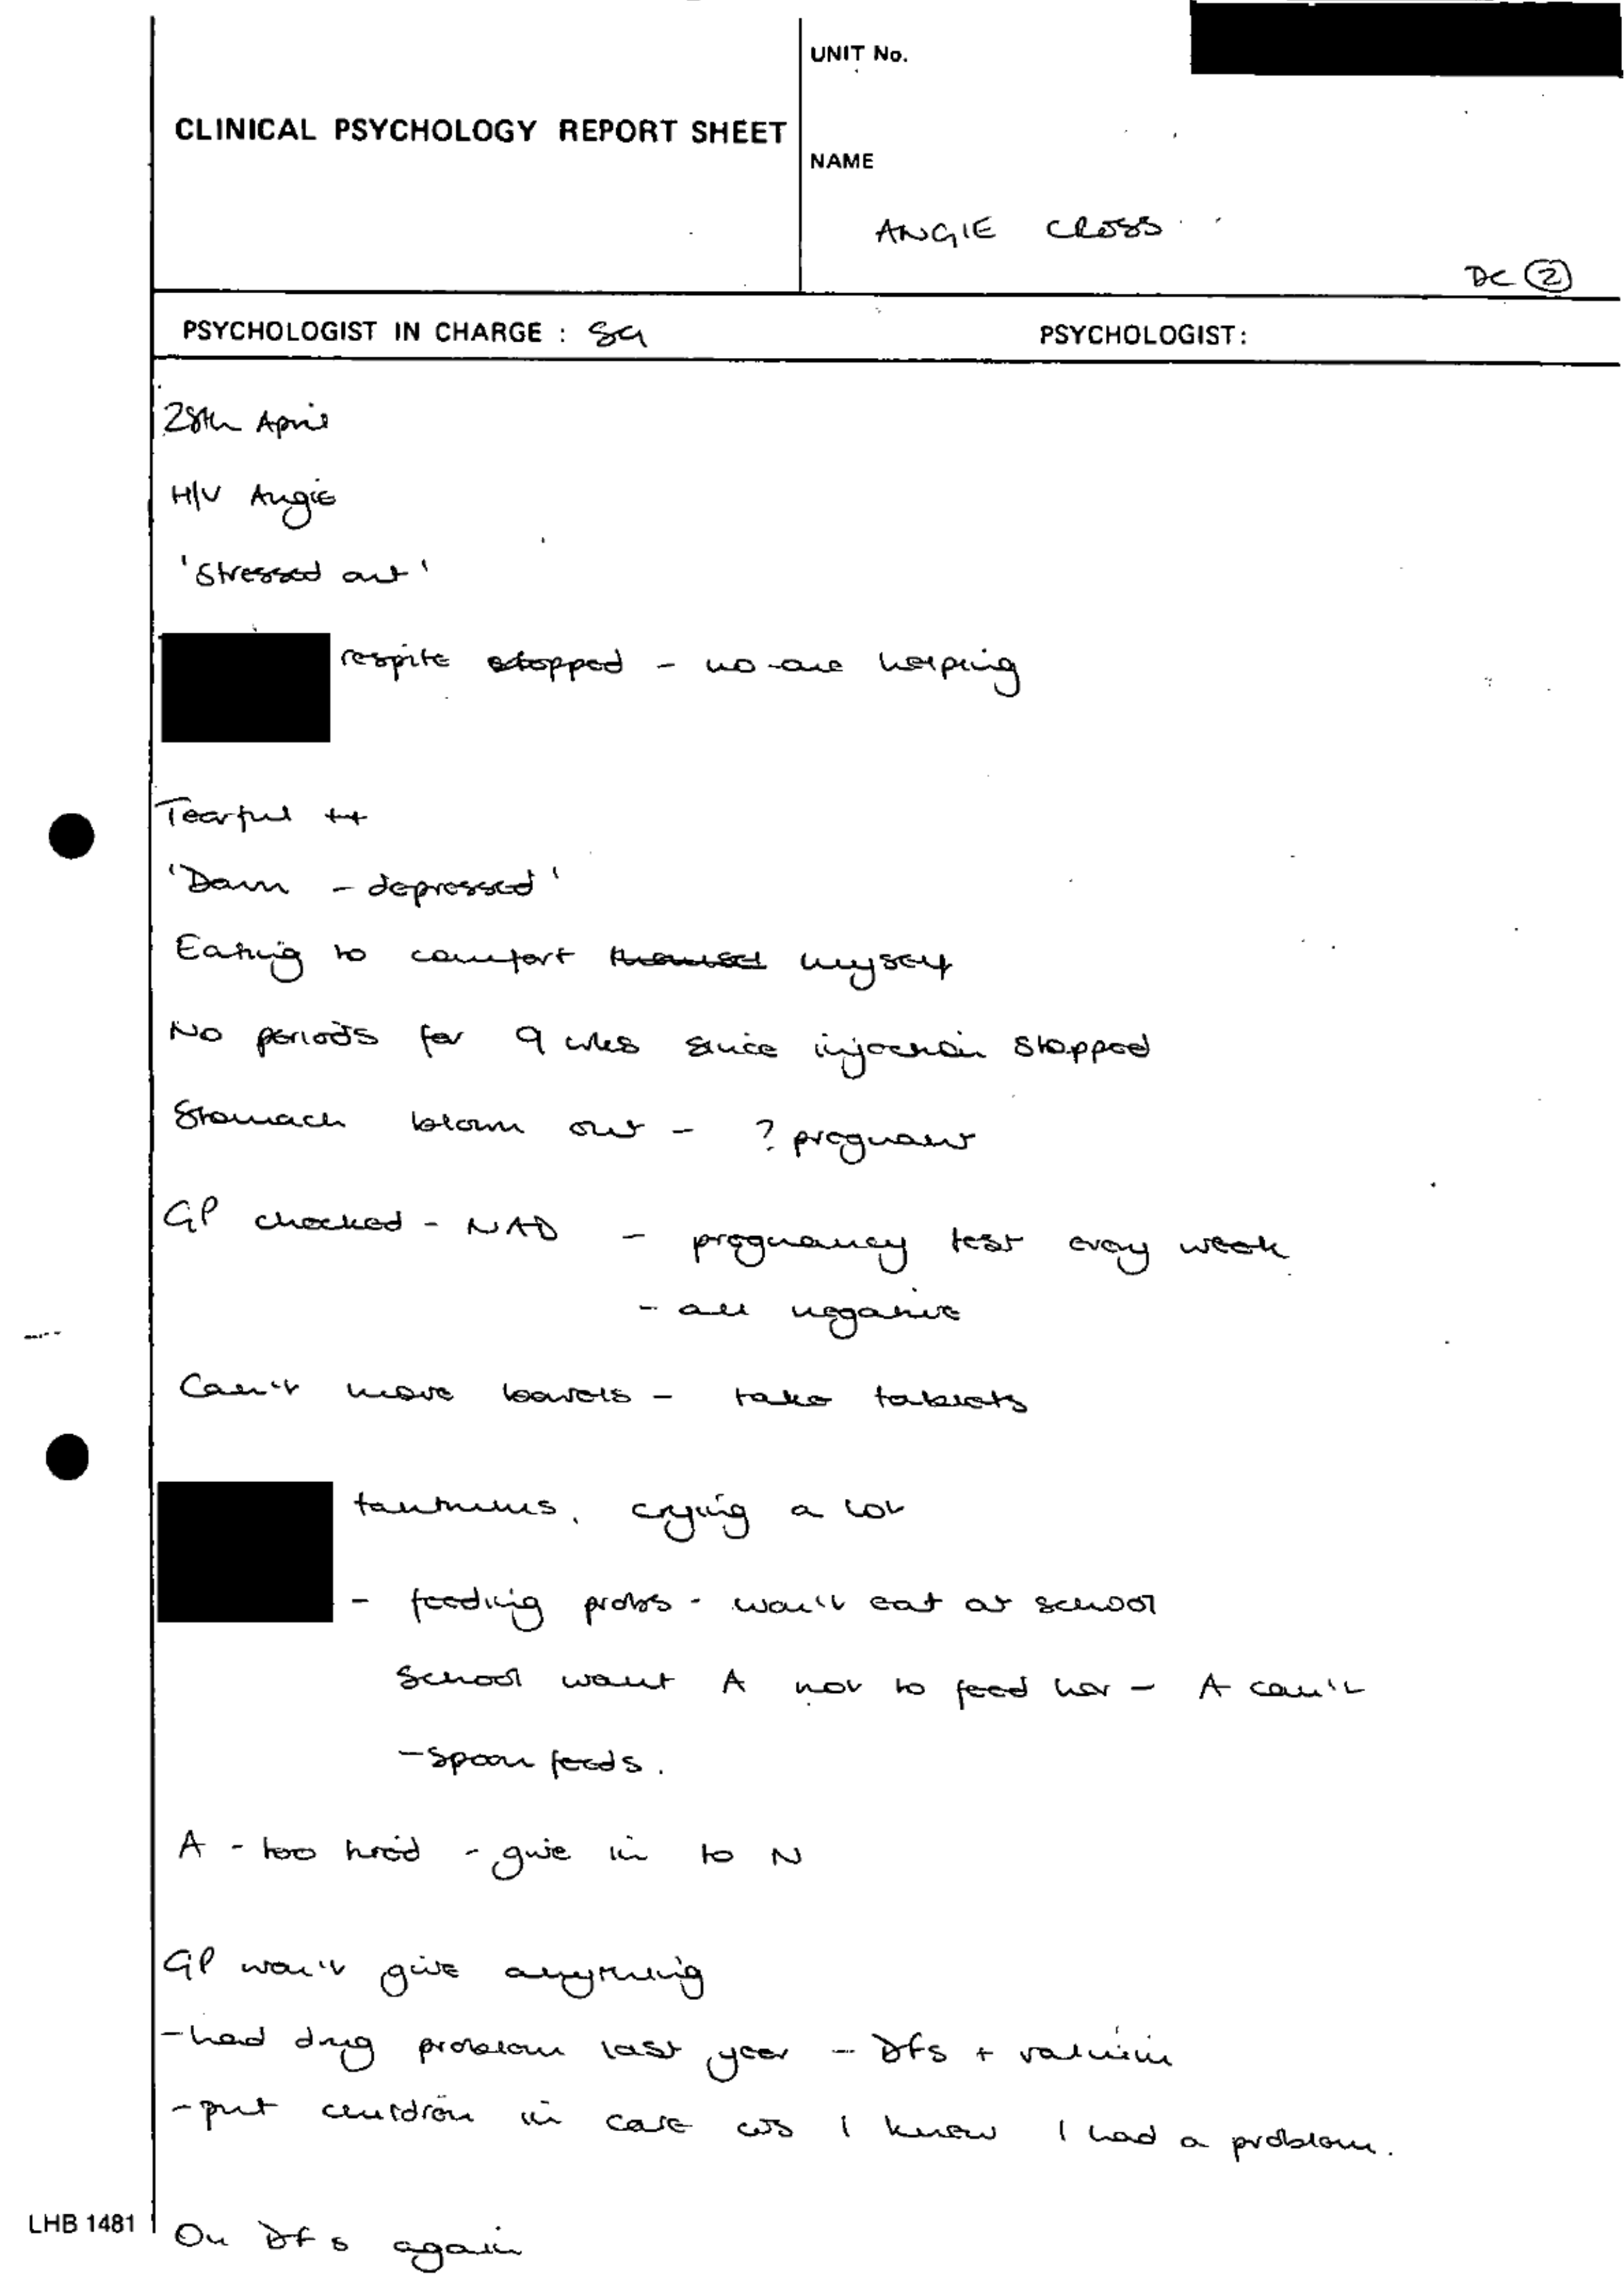 UNIT No.
CLINICAL PSYCHOLOGY REPORT SHEET
NAME
ANGIE CROSS
DC 2
PSYCHOLOGIST IN CHARGE : SG
PSYCHOLOGIST:
28th April
H/V Angie
'Stressed out'
respite stopped - no-one helping
Tearful ++
'Down - depressed'
Eating to comfort myself
No periods for 9 wks since injection stopped
Stomach blown out - ? pregnant
GP checked - NAD - pregnancy test every week
- all negative
Can't move bowels - take tablets
tantrums, crying a lot
- feeding probs - won't eat at school
School want A not to feed her - A can't
- spoon feeds.
A - too tired - give in to N
GP won't give anything
- had drug problem last year - DFs + valium
- put children in care cos I knew I had a problem.
LHB 1481
On DFs again